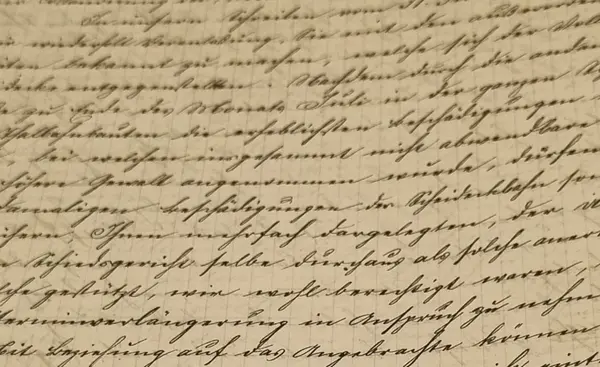 In unserm Schreiben vom
wiederholt Veranlassung, Sie mit den
bekannt zu machen, welche sich der
entgegenstellten. Nachdem durch die
zu Ende des Monats Juli in der ganzen
die erheblichsten Beschädigungen
bei welchen insgesammt nicht abwendbare
höhere Gewalt angenommen wurde, dürfen
damaligen Beschädigungen der Scheideckbahn
Ihnen mehrfach dargelegten, der
Schiedsgericht selbe durchaus als solche
gestützt, wir wohl berechtigt waren,
Terminverlängerung in Anspruch zu nehm
Mit Beziehung auf das Angebrachte können